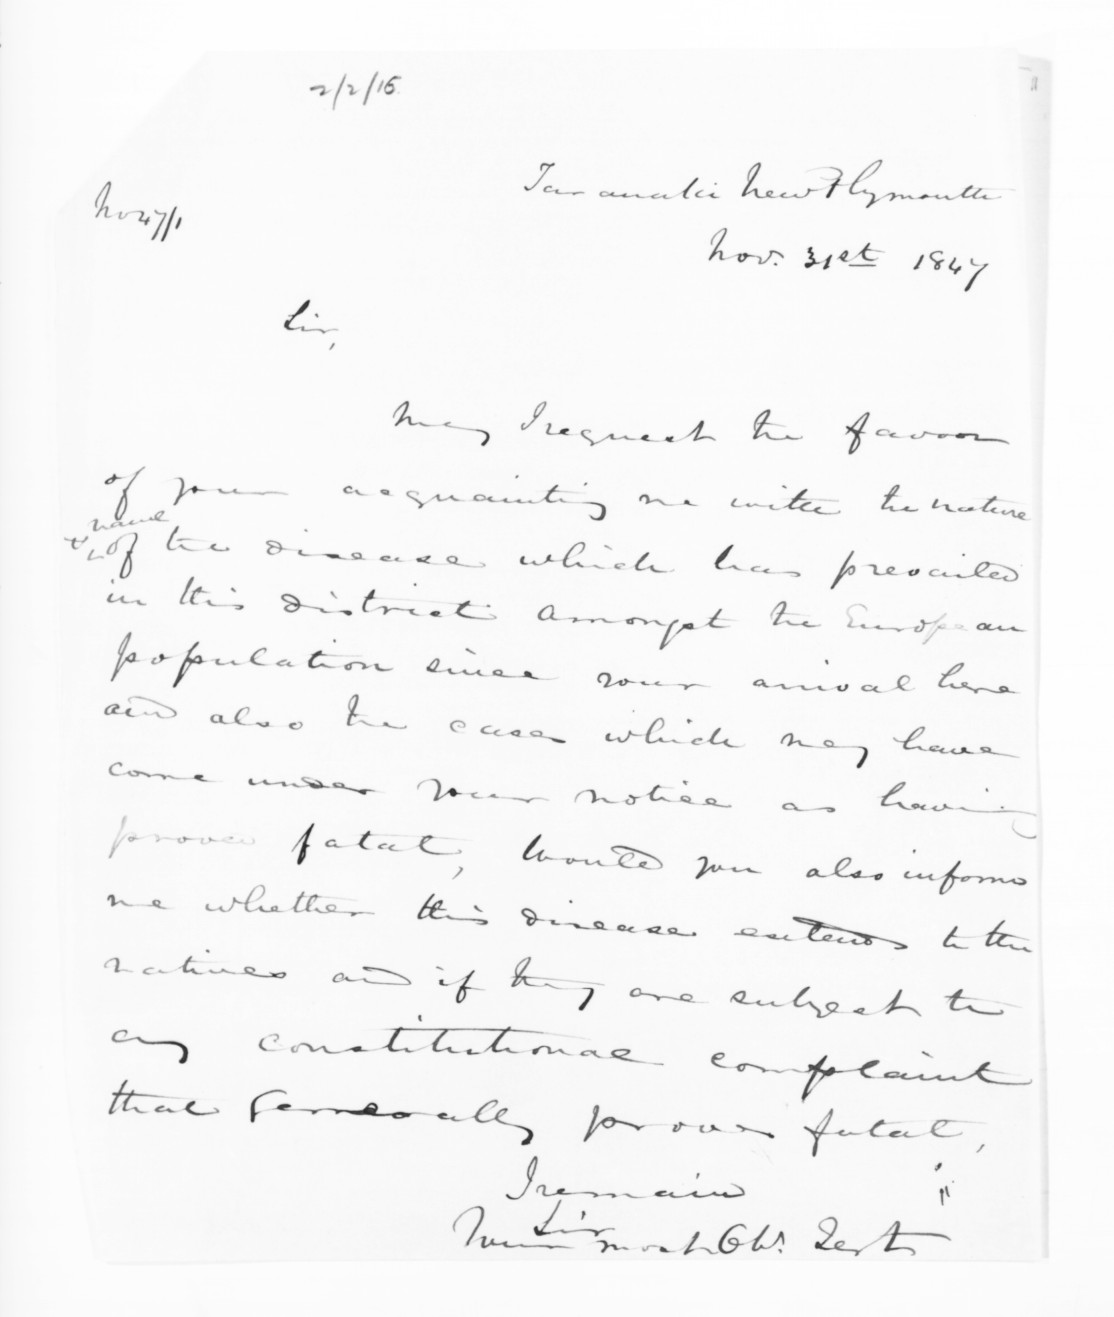 2/2/15
Taranaki New Plymouth
No 47/1
Nov. 31st 1847
Sir,
May I request the favor
of your acquainting me with the nature
& name
of the disease which has prevailed
in this district amongst the European
population since your arrival here
and also the cases which may have
come under your notice as having
proved fatal, Would you also inform
me whether this disease extends to the
natives and if they are subject to
any constitutional complaint
that Generally proves fatal,
I remain
Sir
Your most Ob. Servt